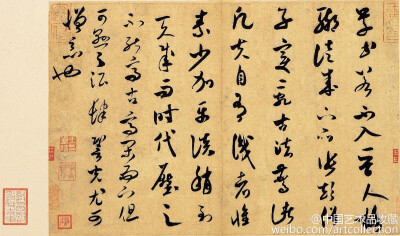 草書若不入晉人格
輒徒成下品張顛俗
子變亂古法驚諸
凡夫自有識者懷
素少加平淡稍到
天成而時代壓之
不能高古高閑而下但
可懸之酒肆䛒光尤可
憎惡也
@中国艺术品收藏
weibo.com/artcollection